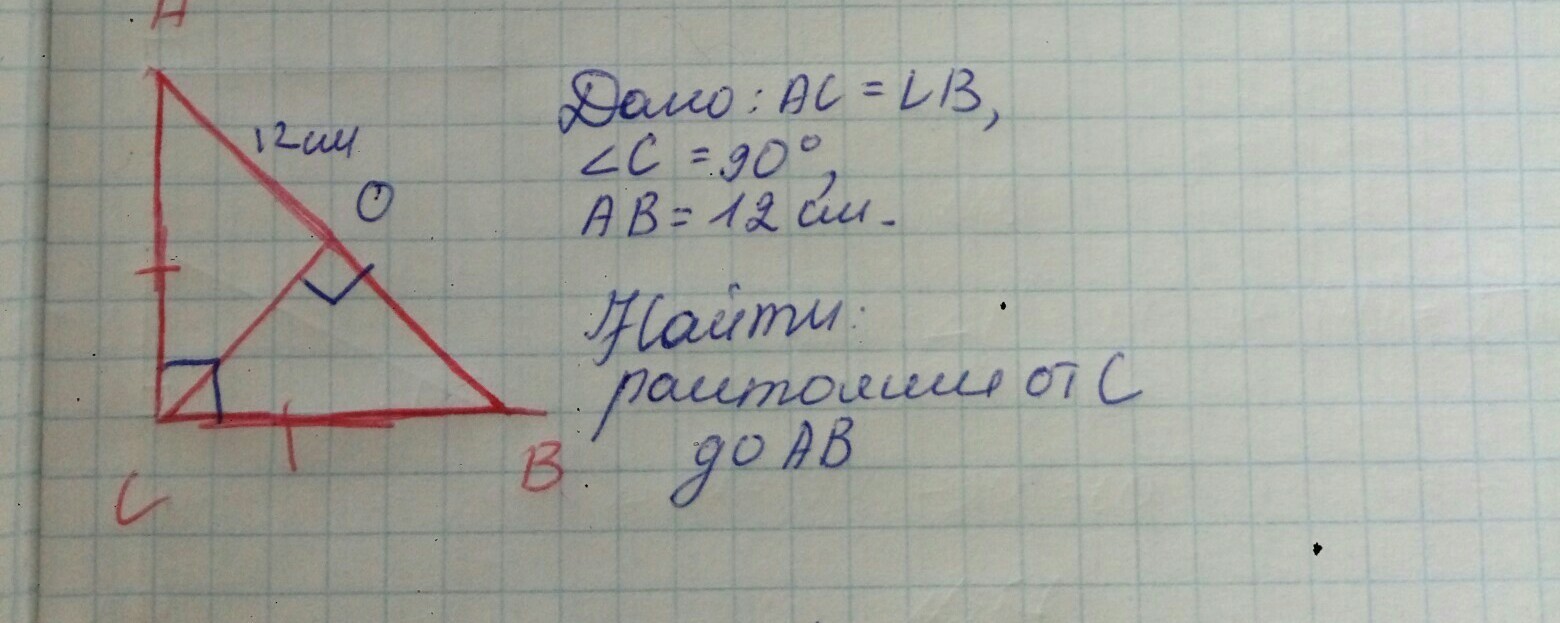 A
12см
O
C
B
Дано: AC = CB,
∠C = 90°,
AB = 12 см.
Найти:
расстояние от C
до AB